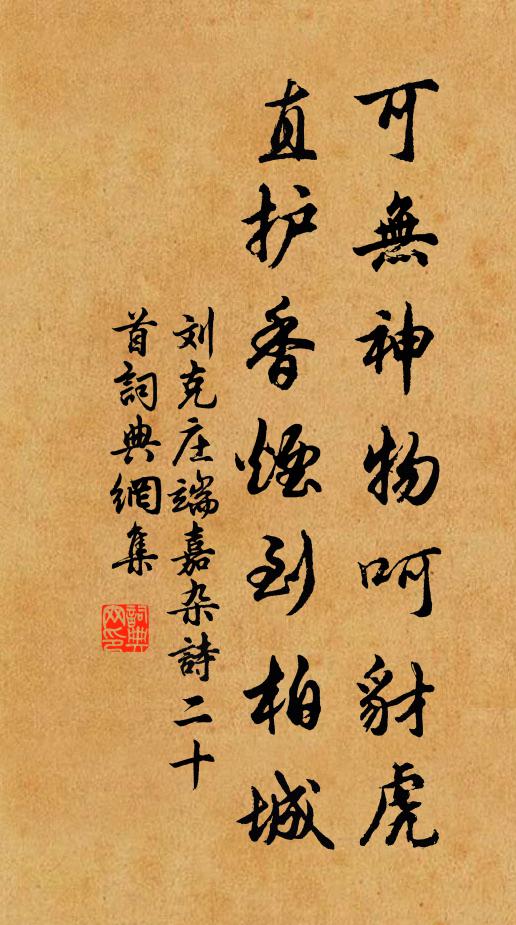 可無神物呵豺虎
直护香煙到柏城
刘克庄端嘉杂詩二十
首詞典網集
詞典
网印